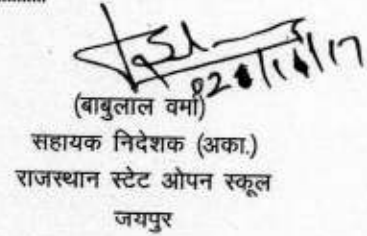 (बाबुलाल वर्मा)
सहायक निदेशक (अका.)
राजस्थान स्टेट ओपन स्कूल
जयपुर